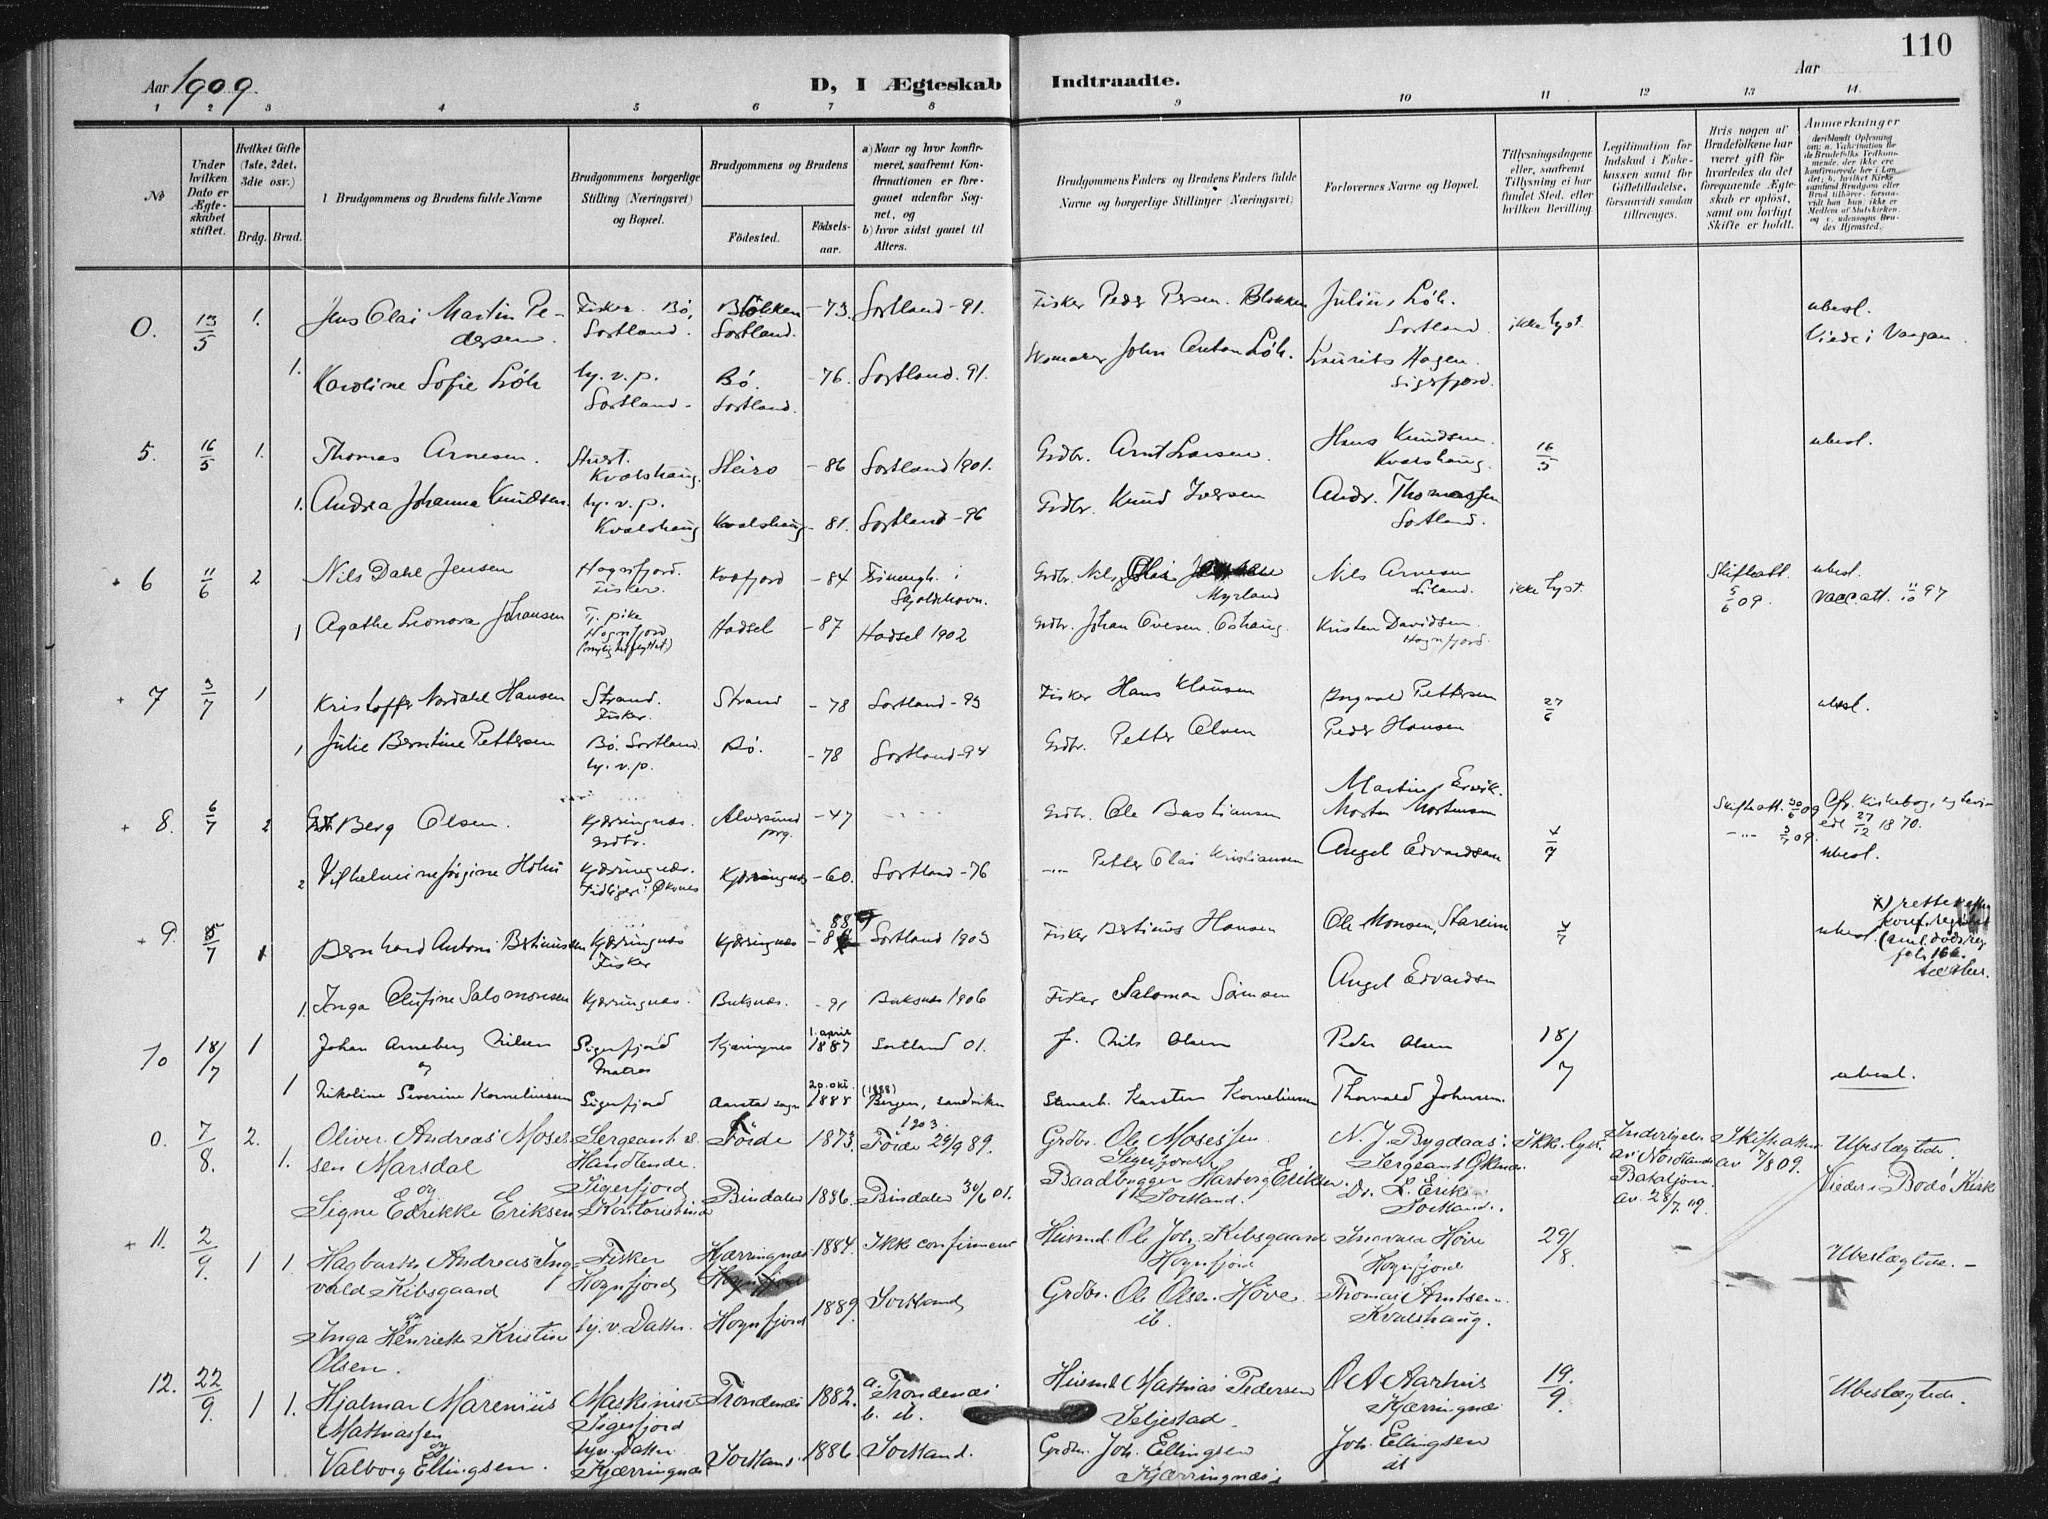 110
Aar 1909. D, I Ægteskab Indtraadte. Aar
1 2 3 4 5 6 7 8 9 10 11 12 13 14.
No
Under hvilken Dato er Ægteskabet stiftet.
Hvilket Gifte (1ste, 2det, 3die osv.)
Brdg. Brud.
1 Brudgommens og Brudens fulde Navne
Brudgommens borgerlige Stilling (Næringsvei) og Bopæl.
Brudgommens og Brudens
Fødested.
Fødsels-aar.
a) Naar og hvor konfirmeret, saafremt Konfirmationen er foregaaet udenfor Sognet, og
b) hvor sidst gaaet til Alters.
Brudgommens Faders og Brudens Faders fulde Navne og borgerlige Stillinger (Næringsvei)
Forlovernes Navne og Bopæl.
Tillysningsdagene eller, saafremt Tillysning ei har fundet Sted, efter hvilken Bevilling.
Legitimation for Indskud i Enkekassen samt for Giftetilladelse, forsaavidt saadan tiltrænges.
Hvis nogen af Brudefolkene har været gift før hvorledes da det foregaaende Ægteskab er opløst, samt om lovligt Skifte er holdt.
Anmærkninger
deriblandt Oplysning om: a. Vakcination for de Brudefolks Vedkommende, der ikke ere konfirmerede her i Landet; b. hvilket Kirkesamfund Brudgom eller Brud tilhører, forsaavidt han/hun, ikke er Medlem af Statskirken, og c. udensogns Brudes Hjemsted.
0. 13/5 1. Jens Olai Martin Pedersen. Fisker. Bø, Sortland. Blokken Sortland. -73. Sortland -91. Fisker Peder Persen. Blokken Julius Löh. Sortland. ikke lyst. ubesl. Viede i Vaagan.
1. Karoline Sofie Löh hj. v. p. Sortland. Bø. Sortland. -76. Sortland. 91. John Anton Löh. Laurits Hagen. Sigerfjord.
5. 16/5 1. Thomas Arnesen. Kvalshaug. Steiro -86 Sortland 1901. Grdbr. Arnt Larsen. Hans Knudsen. Kvalshaug. 16/5 ubesl.
1. Andrea Johanna Knudsen. hj. v. p. Kvalshaug Kvalshaug -81. Sortland -96 Grdbr. Knud Iversen Andr. Thomassen Sortland.
+ 6 11/6 2 Nils Dahl Jensen Hognfjord. Fisker. Kvæfjord -84 i Skjoldehavn. Grdbr. Nils Olai Myrland Nils Arnesen Liland. ikke lyst. Skifteatt. 5/6 09. ubesl. vacc. att. 11/10 97
1 Agathe Leonora Johansen T. pike Hognfjord (nylig indflyttet) Hadsel -87 Hadsel 1902 Grdbr. Johan Ovesen. Oshaug. Kristen Davidsen. Hognfjord.
+ 7 3/7 1 Kristoffer Nordahl Hansen Strand. Fisker. Strand -78 Sortland -93 Fisker Hans Klausen Ingval Pettersen 27/6 ubesl.
1 Julie Berntine Pettersen Bø. Sortland. hj. v. p. Bø. -78 Sortland -94 Grdbr. Petter Olsen Peder Hansen
+ 8. 6/7 2 Berg Olsen. Kjerringnæs. Grdbr. Alversund prg. -47 Grdbr. Ole Bastiansen Martin Ervik. Morten Mortensen 4/7 Skifteatt. 30/6 09 Cfr. Kirkebog, 27/12 1870.
2 Vilhelmine Jørgine Holm Kjerringnæs. Tidligere: Øksnes Kjerringnæs -60. Sortland -76 -"- Petter Olai Kristiansen Angel Edvardsen -"- 3/7 09. ubesl.
+ 9. 8/7 1 Bernhard Antoni Bertinussen Kjerringnæs Fisker Kjerringnæs -88 Sortland 1903 Fisker Bertinus Hansen Ole Monsen, Stareim 4/7 ubesl. x) rettet efter konf. register (sml. dödsreg. fol. 166.
1. Inga Olufine Salomonsen Kjerringnæs. Buksnæs. -91 Buksnæs 1906 Fisker Salomon Sörensen Angel Edvardsen
10 18/7 1 Johan Arneberg Nilsen Sigerfjord Matros Kjæringnes 1. april 1887 Sortland 01. f. Nils Olsen Peder Olsen 18/7 ubesl.
og
1 Nikoline Severine Korneliussen Sigerfjord Aarstad sogn 20. okt. 1888 (1888) Bergen, Sandviken 1903. Karsten Korneliussen Thorvald Johnsen.
0. 7/8. 2. 1. Oliver Andreas Mosessen Marsdal Sergeant & Handlende. Sigerfjord Förde 1873. Förde 29/9 89. Grdbr. Ole Mosessen. Sigerfjord N. J. Bygdaas. Sergeant Ikke lyst. av Nordlands Bataljon. av 28/7 09. Skifteattest av 7/8 09. Ubeslægtede. Viede i Bodö Kirke
og
Signe Edrikke Eriksen Kontoristinde Bindalen 1886. Bindalen 30/6 01. Baadbygger Hartvig Eriksen. Sortland. Dr. L. Eriksen Sortland.
+ 11. 2/9. 1 1 Hagbarth Andreas Ingvald Kibsgaard Fisker Hognfjord Kjærringnæs 1884. Ikke confirmeret Husmd. Ole Joh. Kibsgaard Hognfjord Ingvald Höve Hognfjord 29/8. Ubeslægtede. -
og
Inga Henriette Kristine Olsen. hj. v. Datter. Hognfjord 1889. Sortland Grdbr. Ole Olsen Höve. ib. Thomas Arntsen. Kvalshaug.
12. 22/9. 1 1. Hjalmar Marenius Mathiassen Maskinist Sigerfjord Trondenæs 1882. a. Trondenæs b. ib. Husmd. Mathias Pedersen Seljestad. O A Aarhus Kjærringnæs 19/9. Ubeslægtede.
og
Valborg Ellingsen. hjv. Datter Kjærringnæs Sortland. 1886. Sortland. Grdbr. Joh. Ellingsen Kjærringnæs Joh. Ellingsen